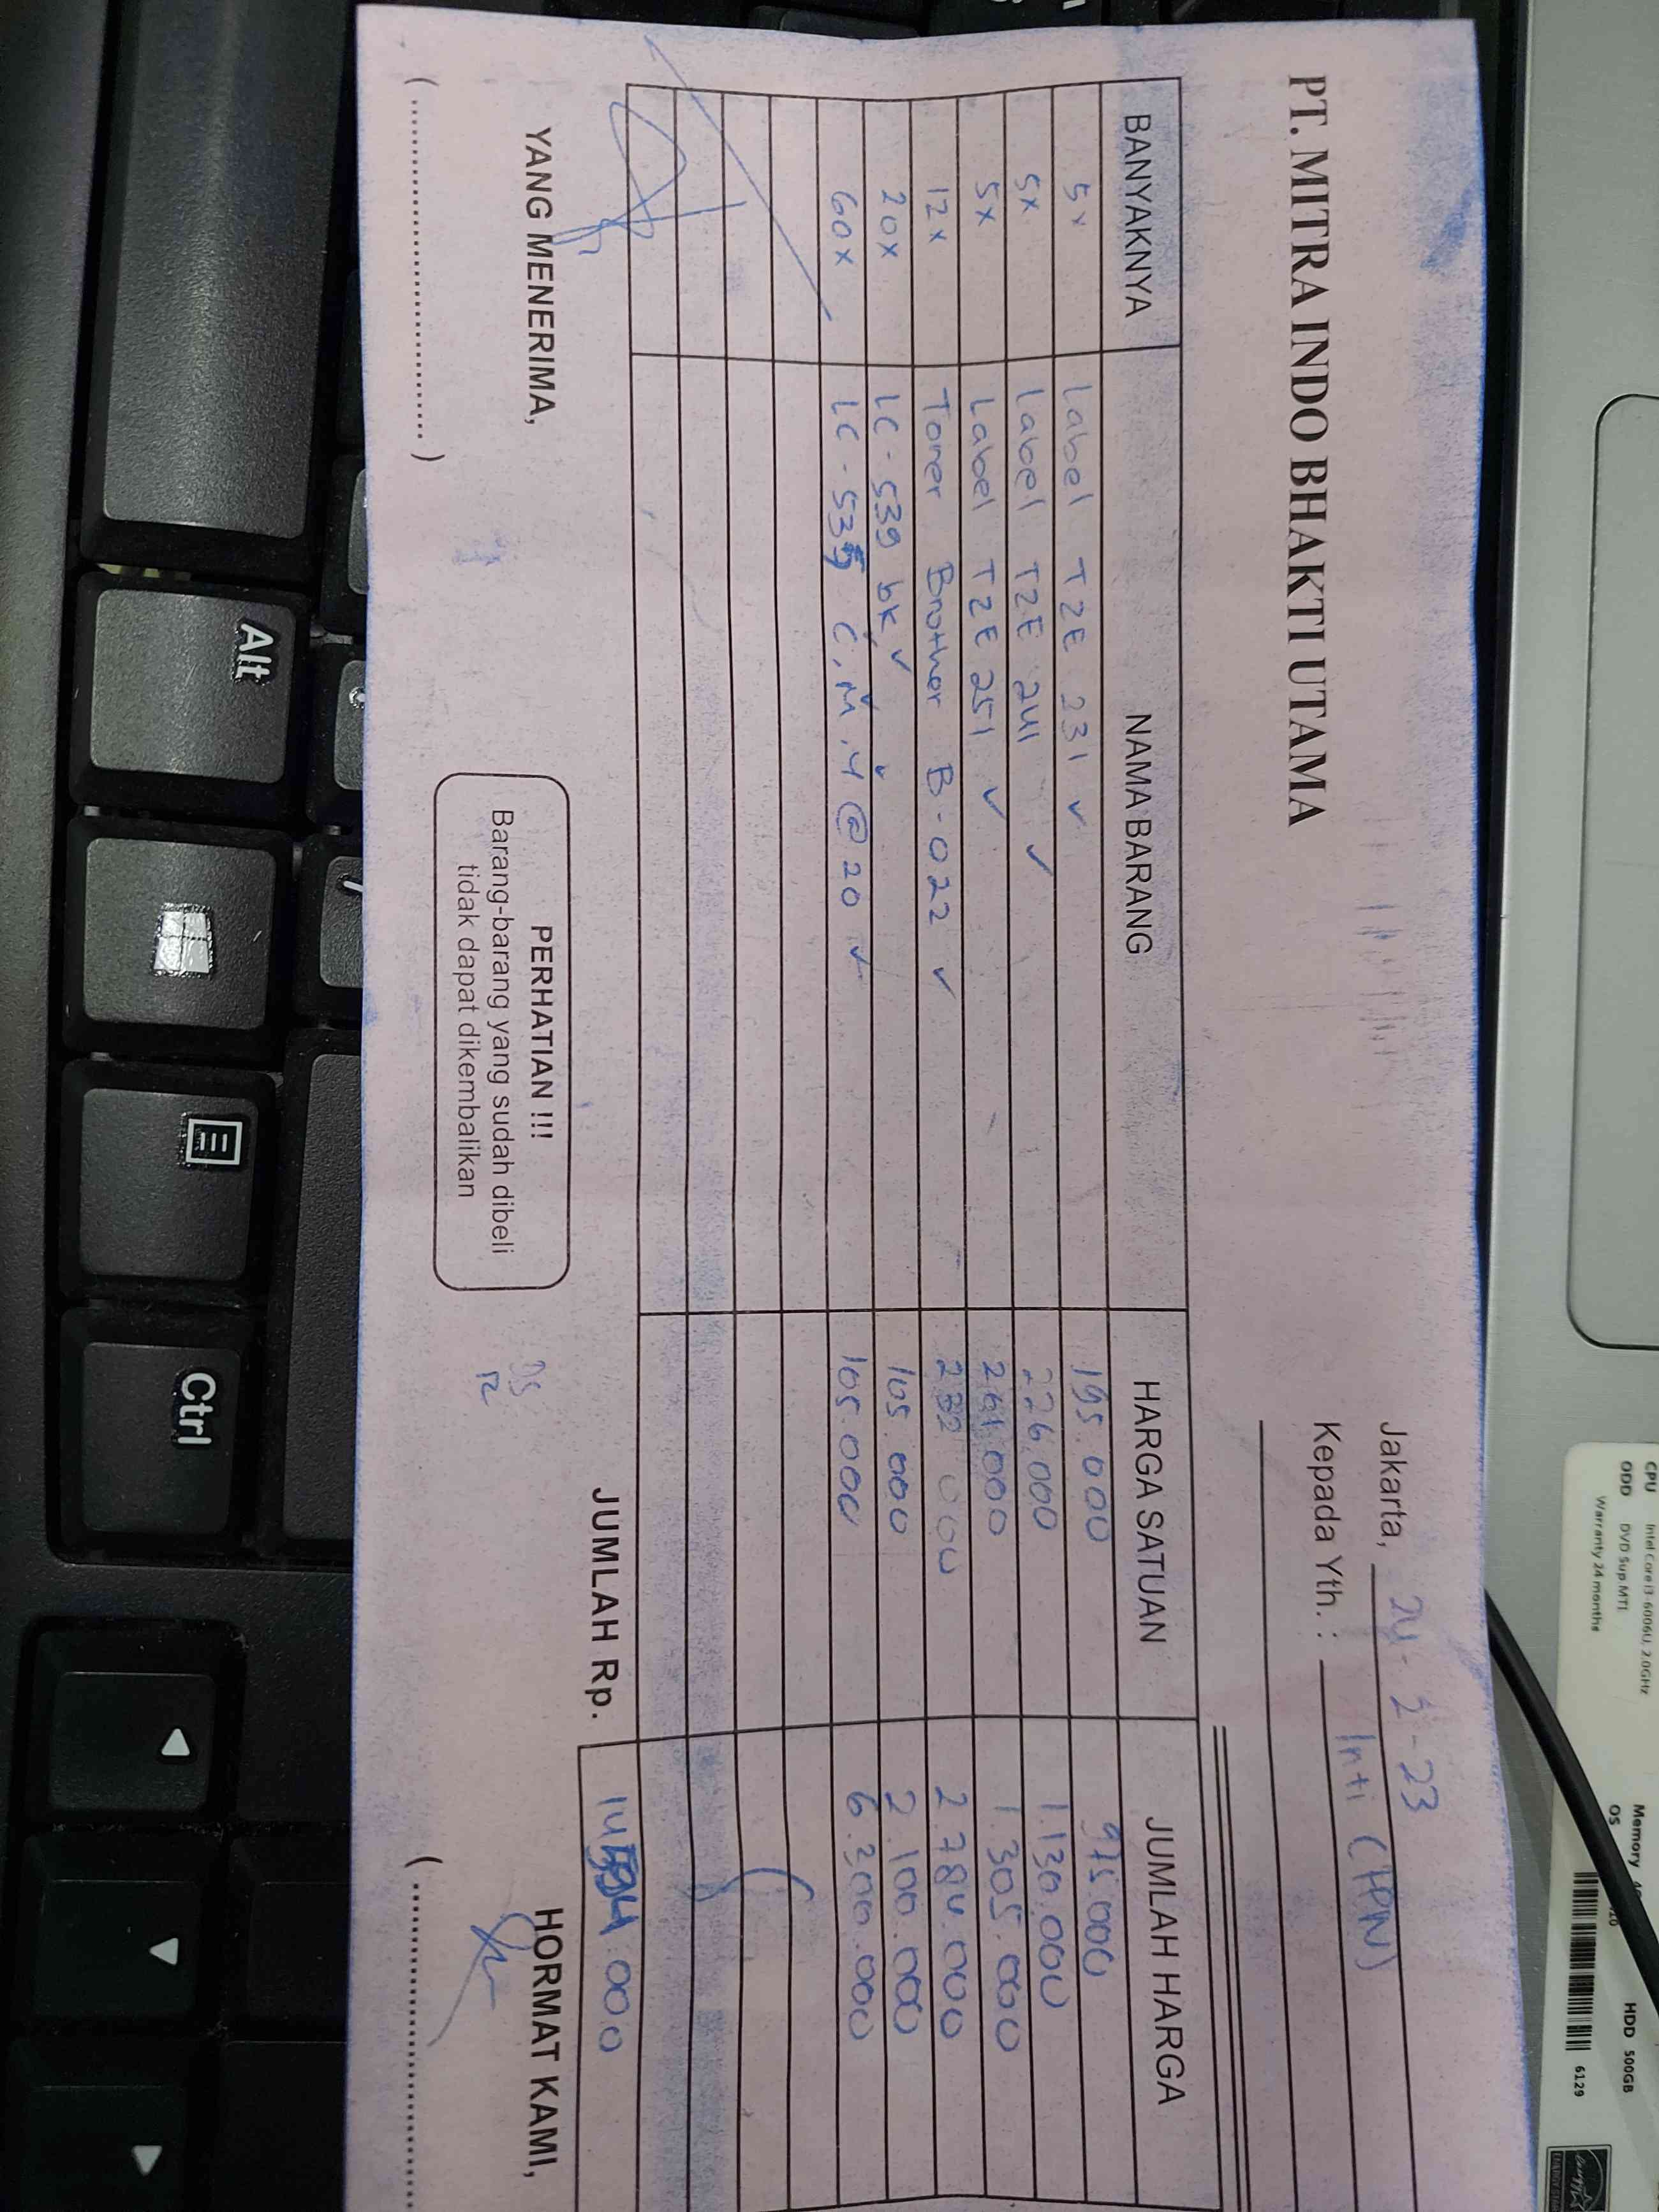 PT. MITRA INDO BHAKTI UTAMA
Jakarta, 24 - 2 - 23
Kepada Yth. : Inti (PPN)
BANYAKNYA NAMA BARANG HARGA SATUAN JUMLAH HARGA
5x Label TZE 231 ✓ 195.000 975.000
5x Label TZE 241 ✓ 226.000 1.130.000
5x Label TZE 251 ✓ 261.000 1.305.000
12x Toner Brother B-022 ✓ 232.000 2.784.000
20x LC - 539 bk ✓ 105.000 2.100.000
60x LC - 535 C, M, Y @ 20 ✓ 105.000 6.300.000
JUMLAH Rp. 14.594.000
YANG MENERIMA,
HORMAT KAMI,
PERHATIAN !!!
Barang-barang yang sudah dibeli
tidak dapat dikembalikan
Alt
Ctrl
CPU Intel Core i3-6006U, 2.0GHz
ODD DVD Sup.MTL
Warranty 24 months
Memory
OS
HDD 500GB
6129